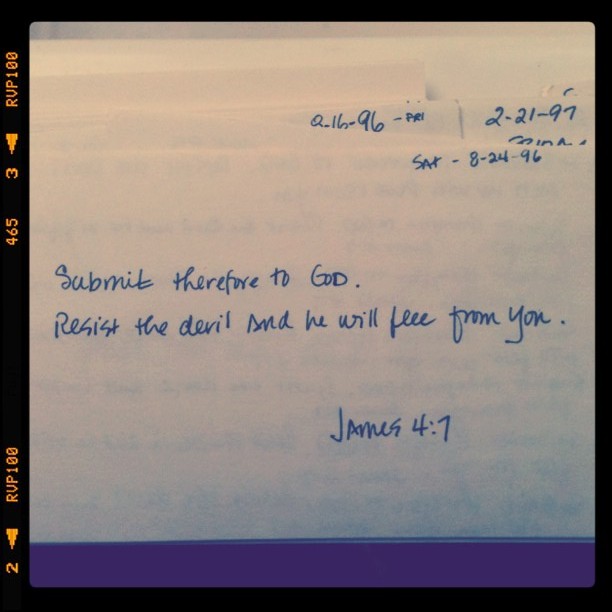 RVP100
3
465
RVP100
2
2-16-96 - FRI
2-21-97
SAT - 8-24-96
Submit therefore to GOD.
Resist the devil And he will flee from you.
JAMES 4:7